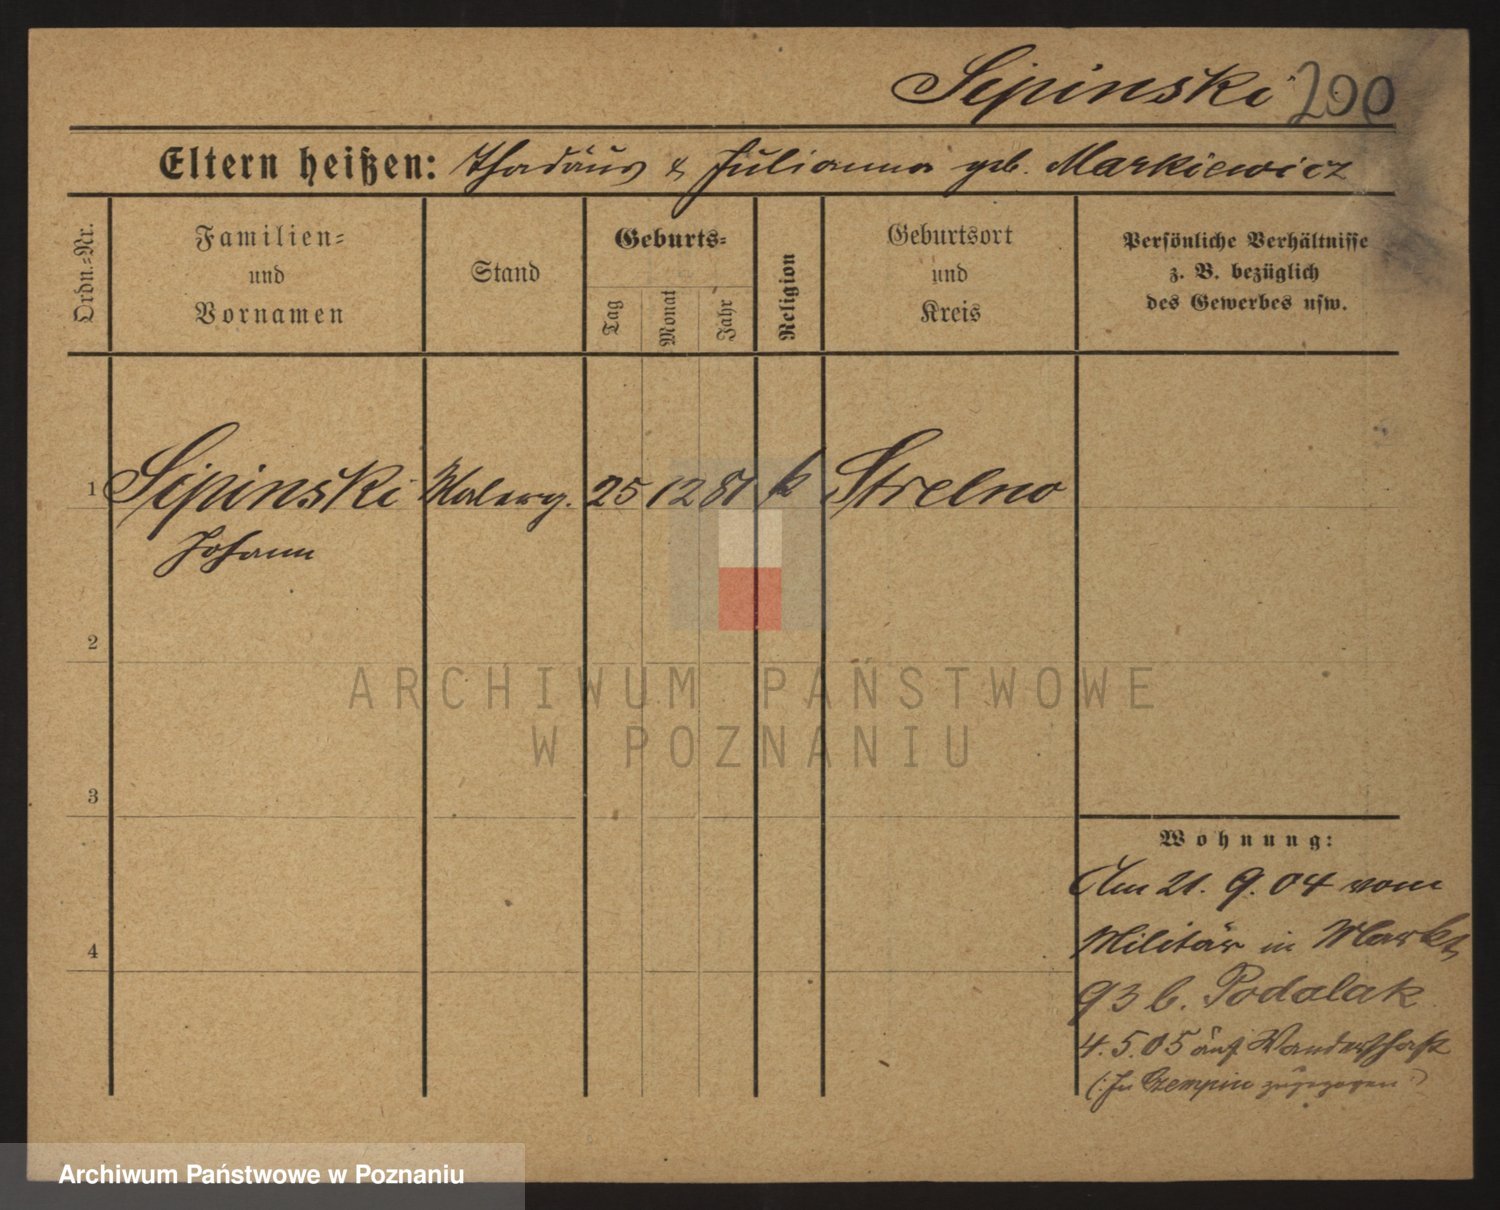 Sipinski 200
Eltern heißen: Thadäus & Julianna geb. Markiewicz
Ordn.-Nr.
Familien-
und
Vornamen
Stand
Geburts-
Tag
Monat
Jahr
Religion
Geburtsort
und
Kreis
Persönliche Verhältnisse
z. B. bezüglich
des Gewerbes usw.
1 Sipinski Malerg. 25 12 81 k Strelno
Johann
2
3
4
Wohnung:
Am 21. 9. 04 vom
Militär in Markt
93 b. Podalak
4. 5. 05 auf Wanderschaft
(: In Czempin zugezogen :)
ARCHIWUM PAŃSTWOWE
W POZNANIU
Archiwum Państwowe w Poznaniu